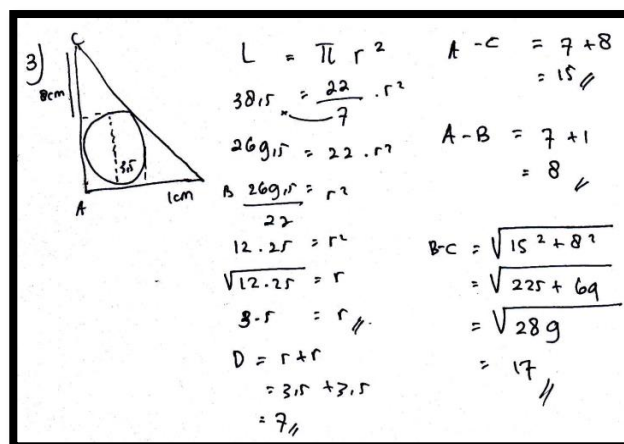 3)
C
8cm
3,5
A
1cm
B
L = π r²
38,5 = 22/7 . r²
269,5 = 22 . r²
269,5/22 = r²
12.25 = r²
√12.25 = r
3.5 = r //
D = r + r
= 3,5 + 3,5
= 7 //
A - C = 7 + 8
= 15 //
A - B = 7 + 1
= 8 //
B-C = √15² + 8²
= √225 + 69
= √289
= 17 //